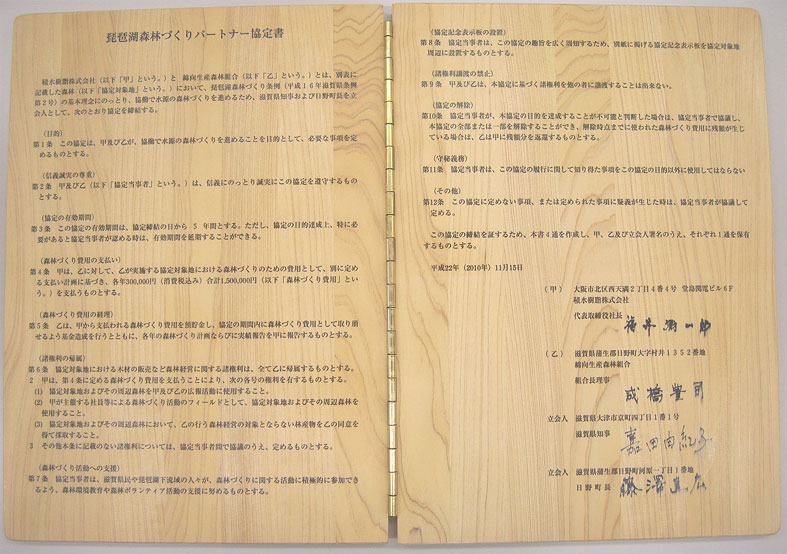 琵琶湖森林づくりパートナー協定書
積水樹脂株式会社（以下「甲」という。）と 綿向生産森林組合（以下「乙」という。）とは、別表に
記載した森林（以下「協定対象地」という。）において、琵琶湖森林づくり条例（平成１６年滋賀県条例
第２号）の基本理念にのっとり、協働で水源の森林づくりを進めるため、滋賀県知事および日野町長を立
会人として、次のとおり協定を締結する。
（目的）
第１条 この協定は、甲及び乙が、協働で水源の森林づくりを進めることを目的として、必要な事項を定
めるものとする。
（信義誠実の尊重）
第２条 甲及び乙（以下「協定当事者」という。）は、信義にのっとり誠実にこの協定を遵守するもの
とする。
（協定の有効期間）
第３条 この協定の有効期間は、協定締結の日から ５ 年間とする。ただし、協定の目的達成上、特に必
要があると協定当事者が認める時は、有効期間を延期することができる。
（森林づくり費用の支払い）
第４条 甲は、乙に対して、乙が実施する協定対象地における森林づくりのための費用として、別に定め
る支払い計画に基づき、各年300,000円（消費税込み）合計1,500,000円（以下「森林づくり費用」とい
う。）を支払うものとする。
（森林づくり費用の経理）
第５条 乙は、甲から支払われる森林づくり費用を預貯金し、協定の期間内に森林づくり費用として取り崩
せよう基金造成を行うとともに、各年の森林づくり計画ならびに実績報告を甲に報告するものとする。
（諸権利の帰属）
第６条 協定対象地における木材の販売など森林経営に関する諸権利は、全て乙に帰属するものとする。
２ 甲は、第４条に定める森林づくり費用を支払うことにより、次の各号の権利を有するものとする。
(1) 協定対象地およびその周辺森林を甲及び乙の広報活動に使用すること。
(2) 甲が主催する社員等による森林づくり活動のフィールドとして、協定対象地およびその周辺森林を
使用すること。
(3) 協定対象地およびその周辺森林において、乙の行う森林経営の対象とならない林産物を乙の同意を
得て採取すること。
３ その他本条に記載のない諸権利については、協定当事者間で協議のうえ、定めるものとする。
（森林づくり活動への支援）
第７条 協定当事者は、滋賀県民や琵琶湖下流域の人々が、森林づくりに関する活動に積極的に参加でき
るよう、森林環境教育や森林ボランティア活動の支援に努めるものとする。
（協定記念表示板の設置）
第８条 協定当事者は、この協定の趣旨を広く周知するため、別紙に掲げる協定記念表示板を協定対象地
周辺に設置するものとする。
（諸権利譲渡の禁止）
第９条 甲及び乙は、本協定に基づく諸権利を他の者に譲渡することは出来ない。
（協定の解除）
第10条 協定当事者が、本協定の目的を達成することが不可能と判断した場合は、協定当事者で協議し、
本協定の全部または一部を解除することができ、解除時点までに使われた森林づくり費用に残額が生じ
ている場合は、乙は甲に残額分を返還するものとする。
（守秘義務）
第11条 協定当事者は、この協定の履行に関して知り得た事項をこの協定の目的以外に使用してはならない
（その他）
第12条 この協定に定めない事項、または定められた事項に疑義が生じた時は、協定当事者が協議して
定める。
この協定の締結を証するため、本書４通を作成し、甲、乙及び立会人署名のうえ、それぞれ１通を保有
するものとする。
平成22年（2010年）11月15日
（甲） 大阪市北区西天満２丁目４番４号 堂島関電ビル６Ｆ
積水樹脂株式会社
代表取締役社長 福井彌一郎
（乙） 滋賀県蒲生郡日野町大字村井１３５２番地
綿向生産森林組合
組合長理事
成橋豊司
立会人 滋賀県大津市京町四丁目１番１号
滋賀県知事 嘉田由紀子
立会人 滋賀県蒲生郡日野町河原一丁目１番地
日野町長 藤澤直広